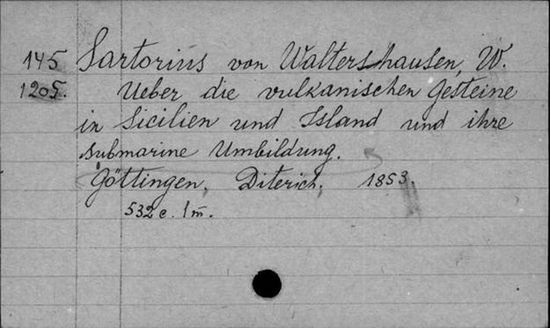 145 Sartorius von Waltershausen, W.
1205. Ueber die vulkanischen Gesteine
in Sicilien und Island und ihre
submarine Umbildung.
Göttingen, Diterich, 1853.
532 c. 1 m.